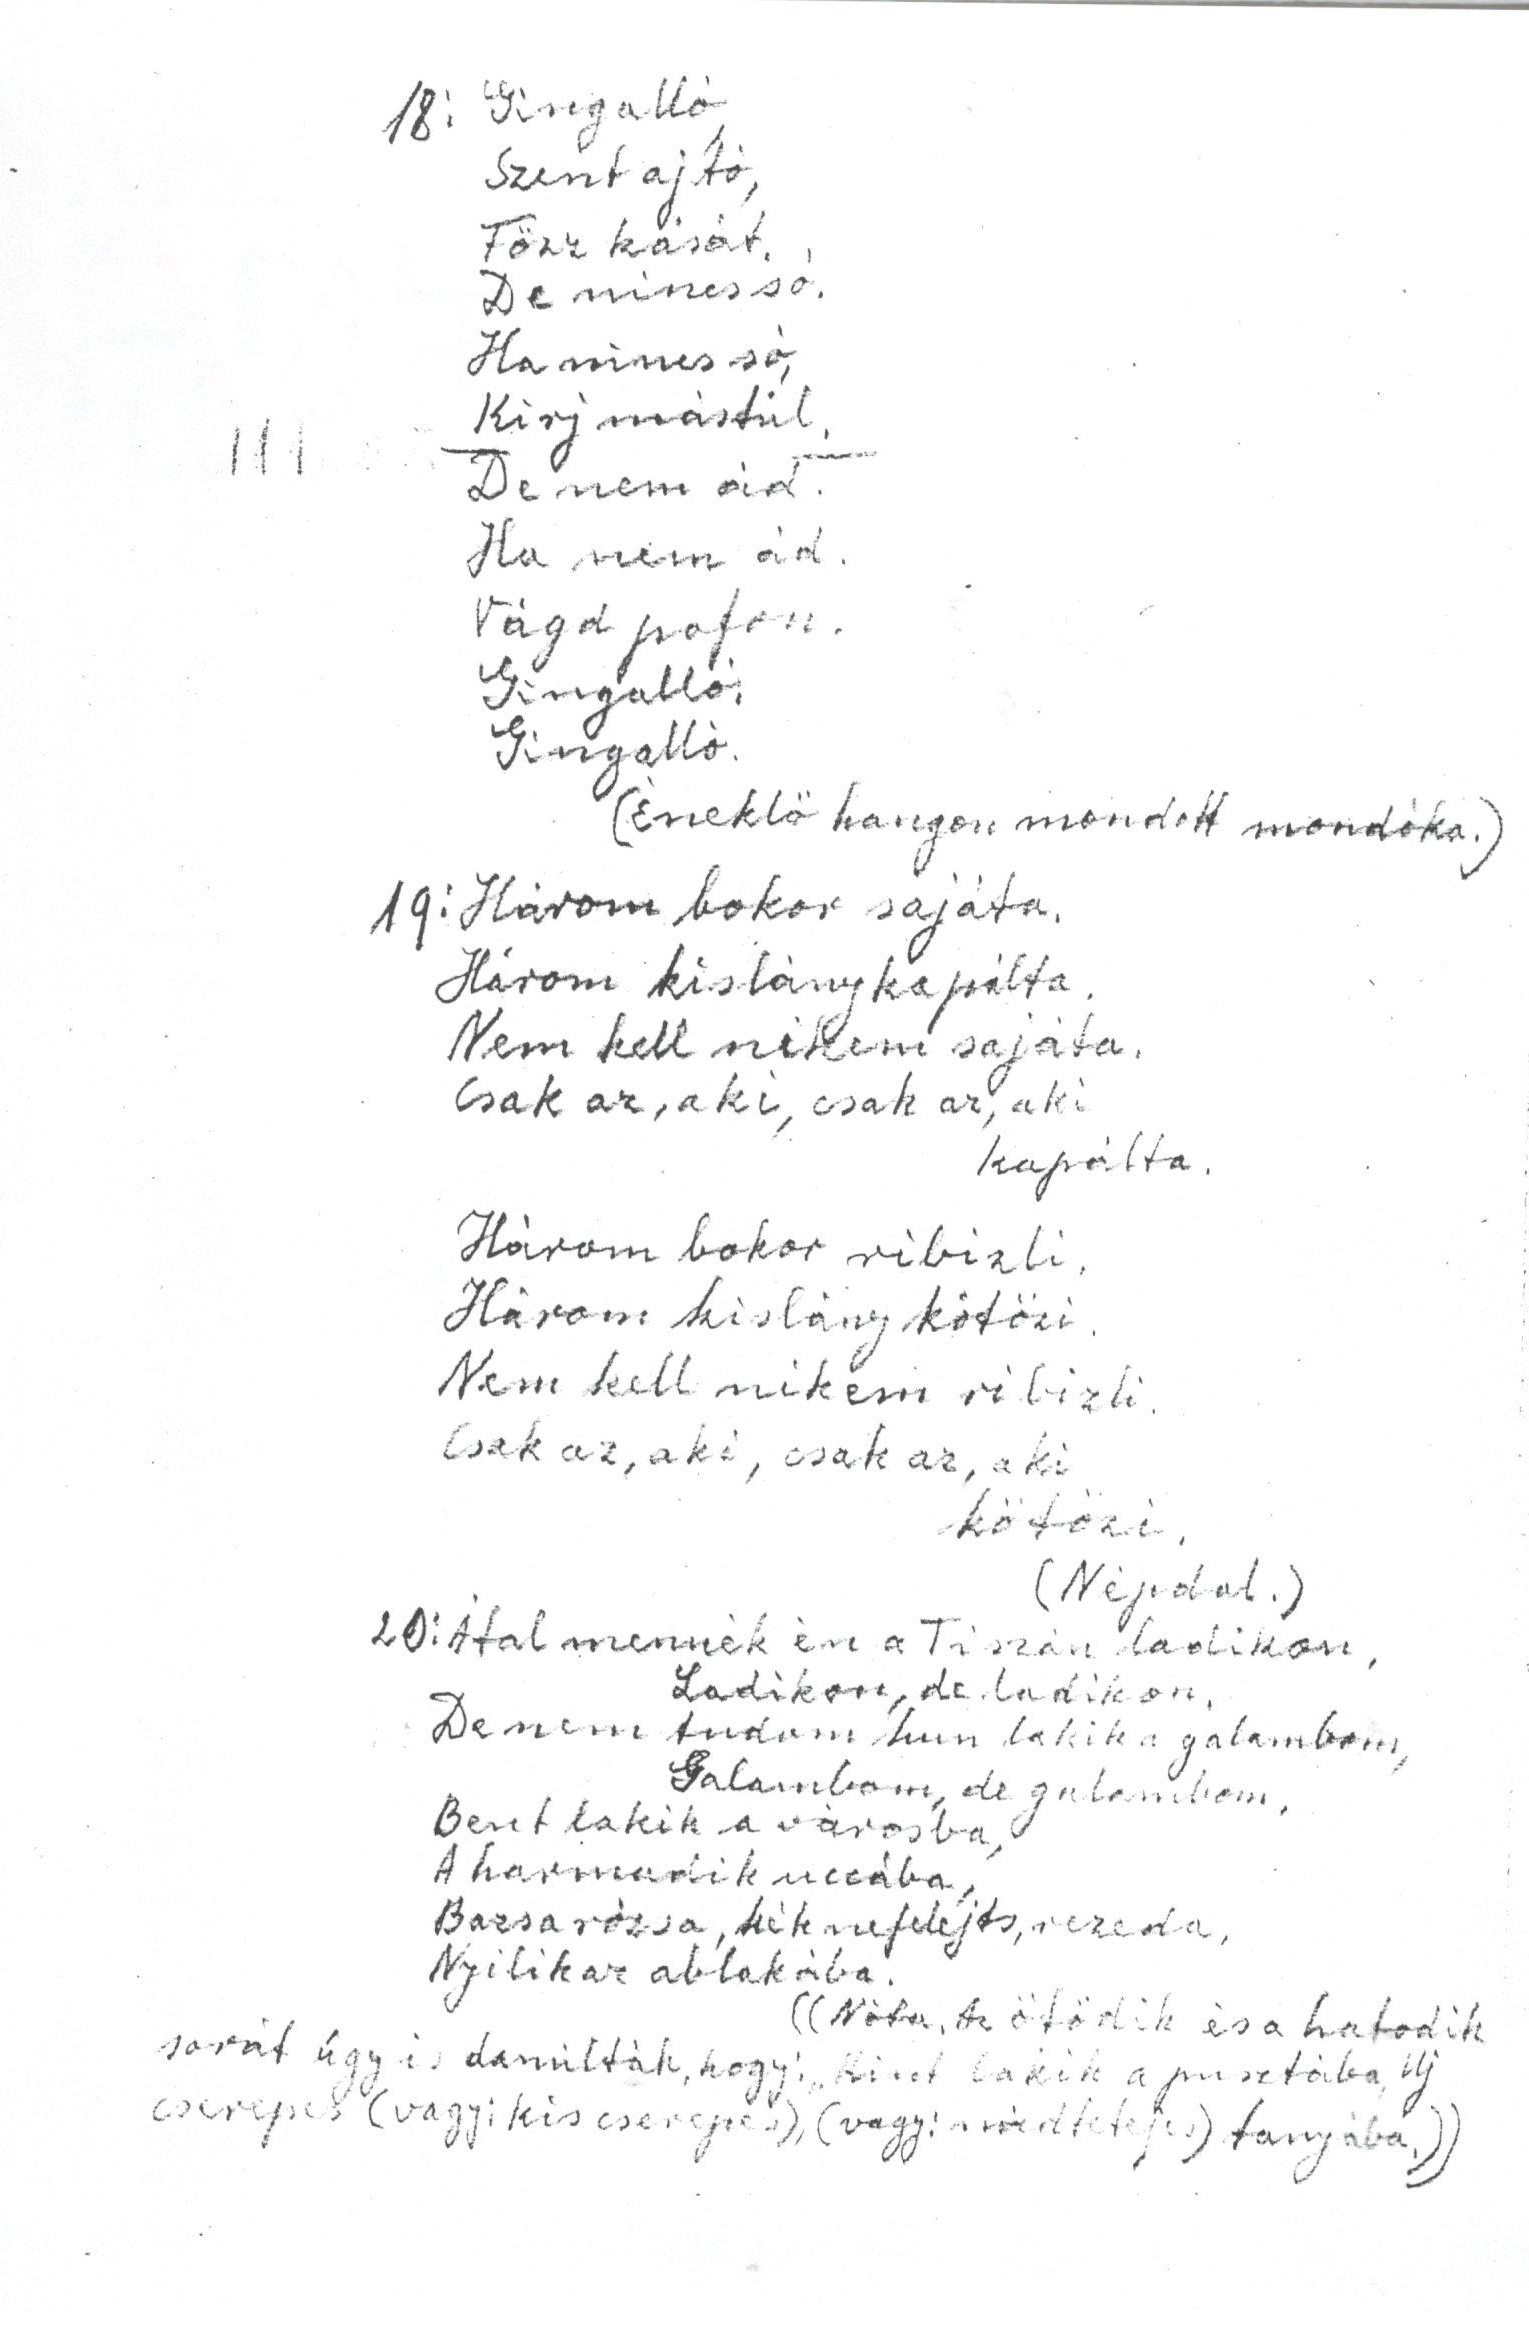 18: Gingalló,
Szent ajtó,
Főzz kását.
De nincs só.
Ha nincs só,
Kirj mástúl.
De nem ád.
Ha nem ád.
Vágd pofon.
Gingalló.
Gingalló.
(Éneklő hangon mondott mondóka.)
19: Három bokor sajáta.
Három kislány kapálta.
Nem kell nikem sajáta.
Csak az, aki, csak az, aki
kapálta.
Három bokor ribizli.
Három kislány kötözi.
Nem kell nikem ribizli.
Csak az, aki, csak az, aki
kötözi.
(Népdal.)
20: Által mennék én a Tiszán ladikon,
Ladikon, de ladikon.
De nem tudom hun lakik a galambom,
Galambom, de galambom.
Bent lakik a városba,
A harmadik uccába,
Bazsarózsa, kék nefelejts, rezeda,
Nyilik az ablakába.
((Nóta. Az ötödik és a hatodik
sorát úgy is danulták, hogy: „Kint lakik a pusztába, Uj
cserepes (vagy: kis cserepes), (vagy: nádtetejes) tanyába.))